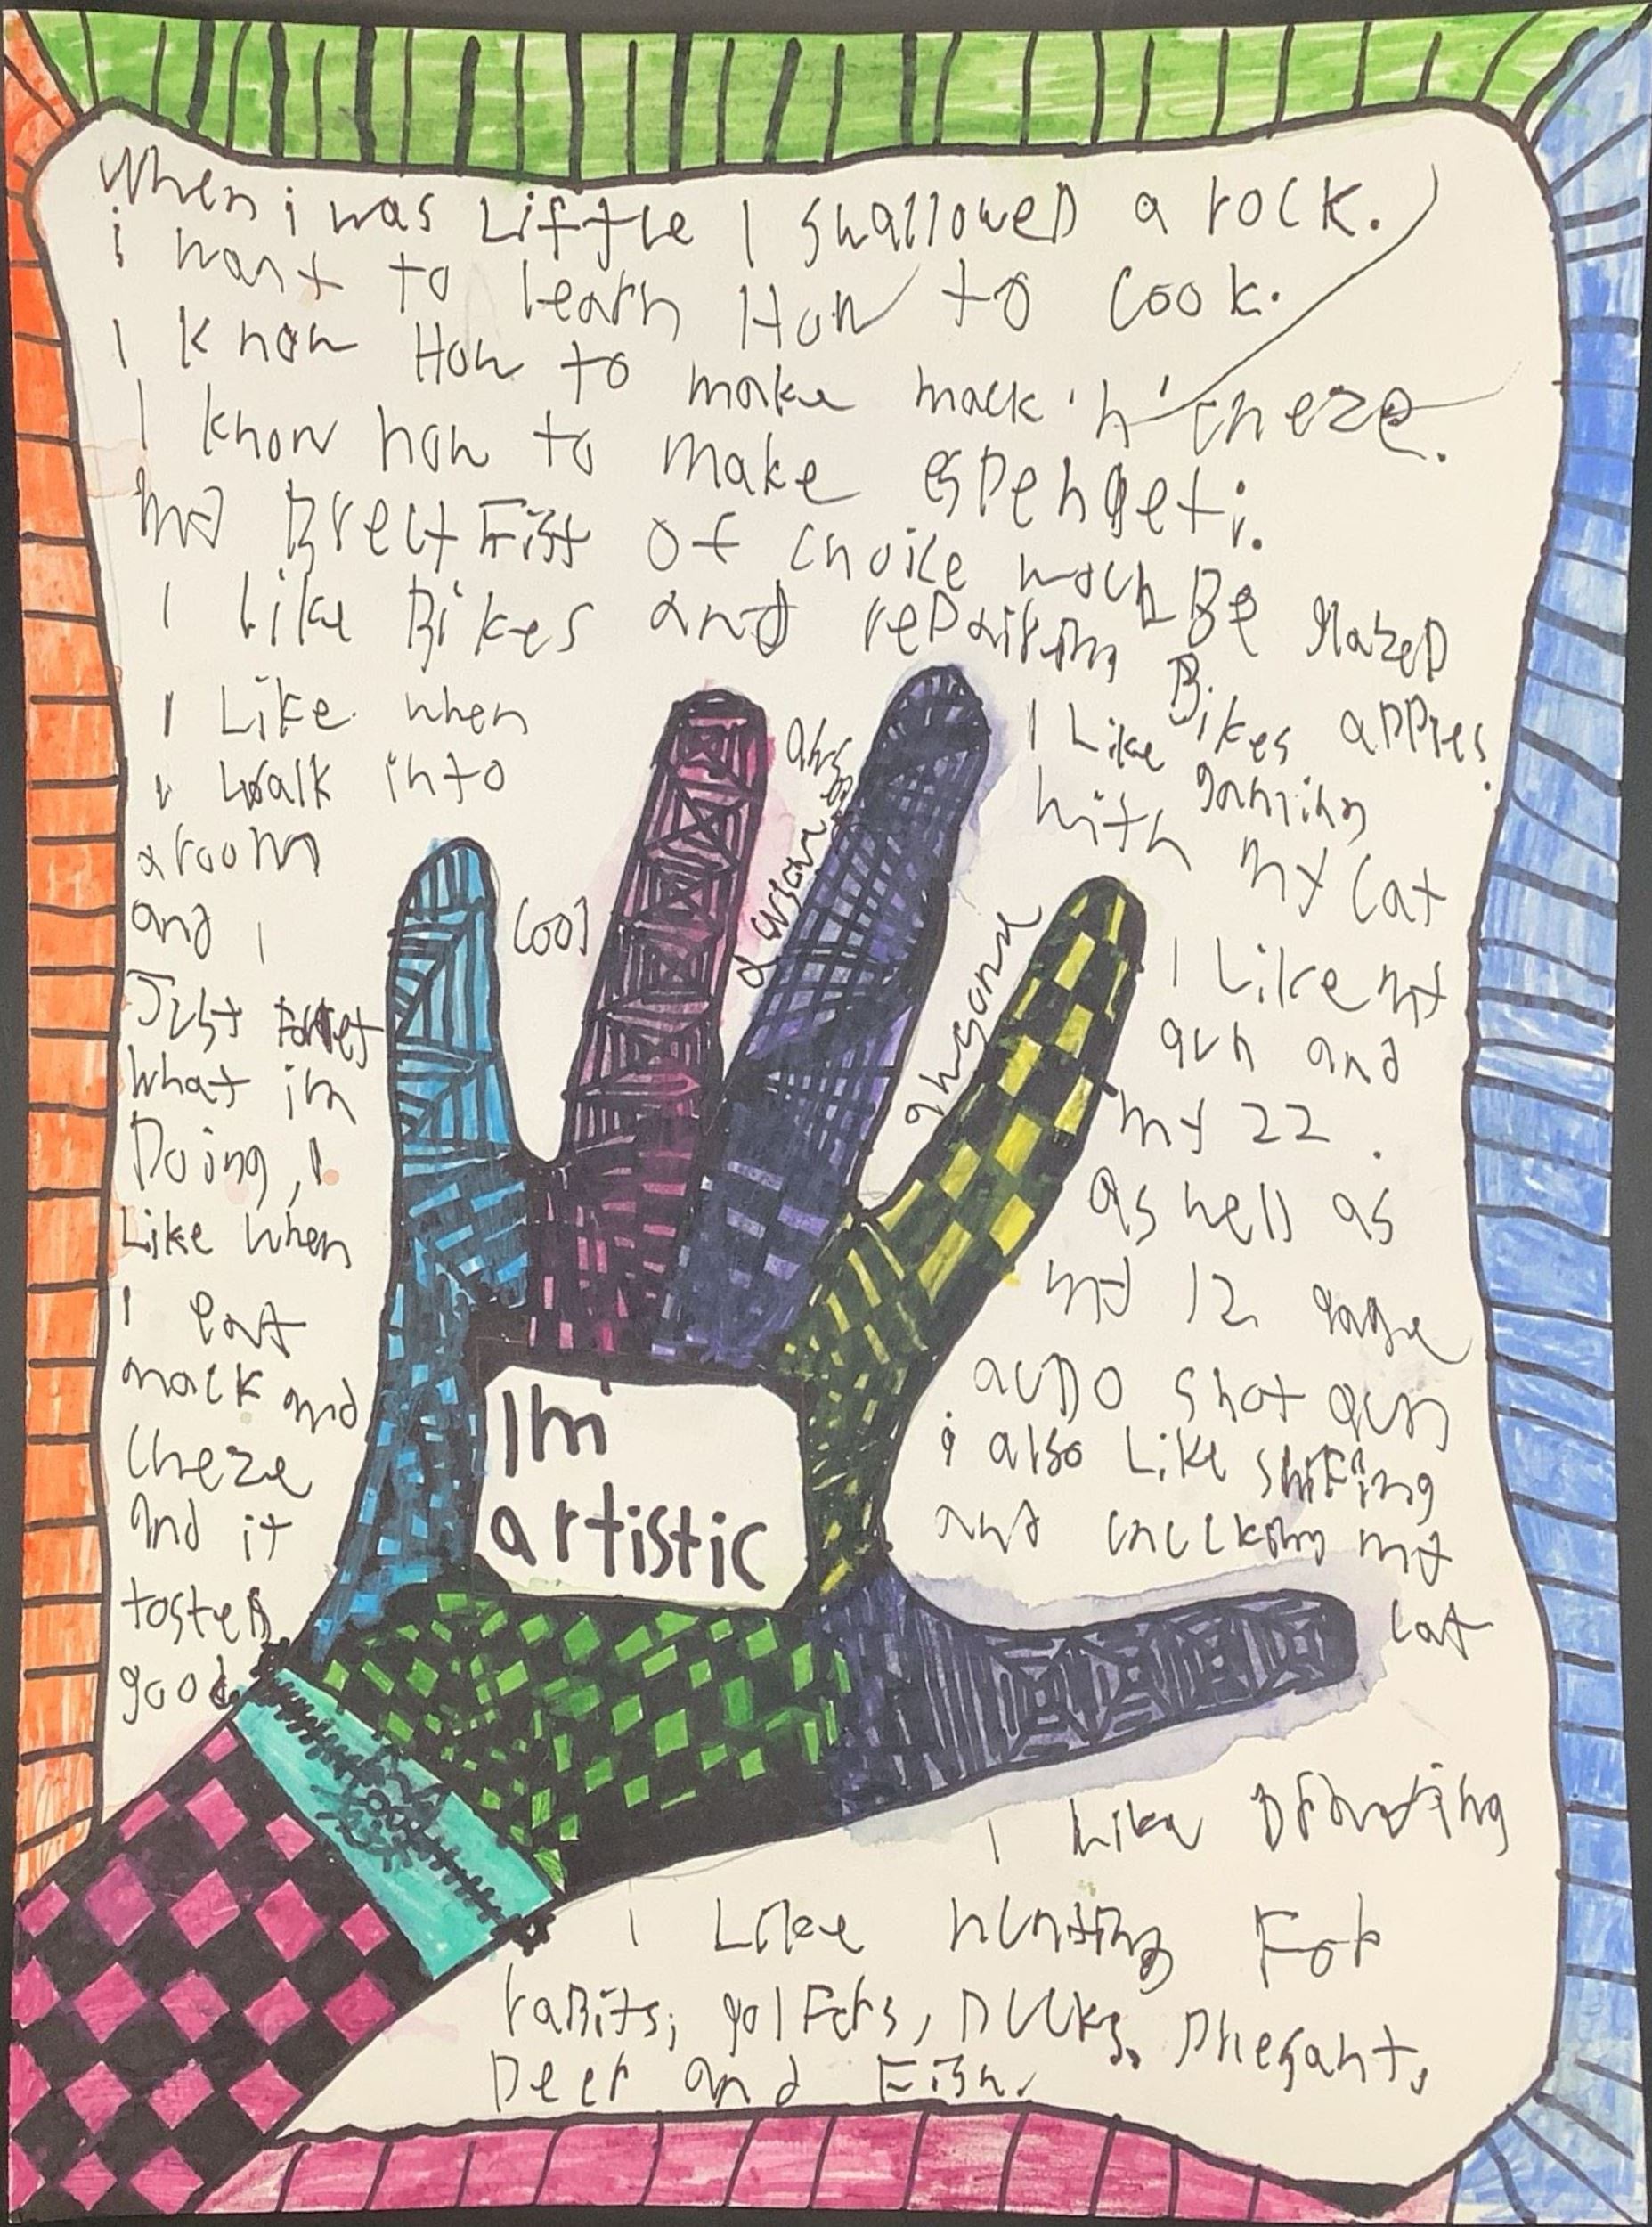 When i was Little I swallowed a rock.
i want to learn How to cook.
I know How to make mack 'n' cheze.
I know how to make
my Brectfist of choice woud Be glazed
apples.
I Like Bikes and repairing Bikes
I Like when
i walk into
a room
and I
Just forget
what im
Doing, I
Like when
I eat
mack and
cheze
and it
tosted
good.
cool
awsome
awsome
I Like gaming
with my cat
I Like my
gun and
my 22.
as well as
my 12 gage
shot gun
i also Like
and my
cat
Im
artistic
I Like Drawing
I Like hunting For
raBits, golfers, Ducks, Phesant,
Deer and Fish.